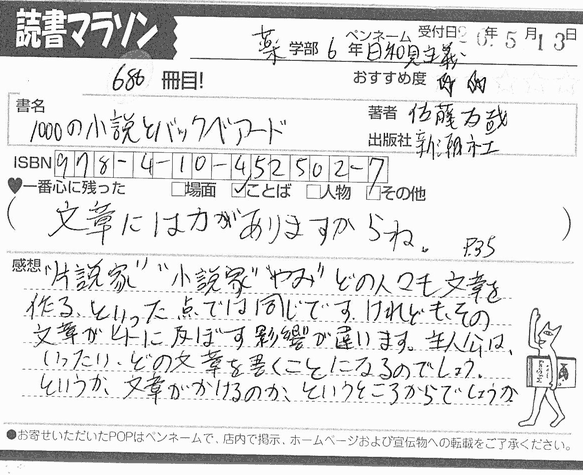 読書マラソン
薬 学部 6 年 ペンネーム 日和見主義 受付日 20.年5月13日
686 冊目!
おすすめ度
書名
1000の小説とバックベアード
著者 佐藤友哉
出版社 新潮社
ISBN 978-4-10-452502-7
♥一番心に残った □場面 ☑ことば □人物 □その他
(文章には力がありますからね。 P.35)
感想 "片説家" "小説家" "やみ" どの人々も文章を
作る、といった点では同じです。けれども、その
文章がヒトに及ぼす影響が違います。主人公は、
いったい、どの文章を書くことになるのでしょう。
というか、文章がかけるのか、というところからでしょうか
●お寄せいただいたPOPはペンネームで、店内で掲示、ホームページおよび宣伝物への転載をご了承ください。